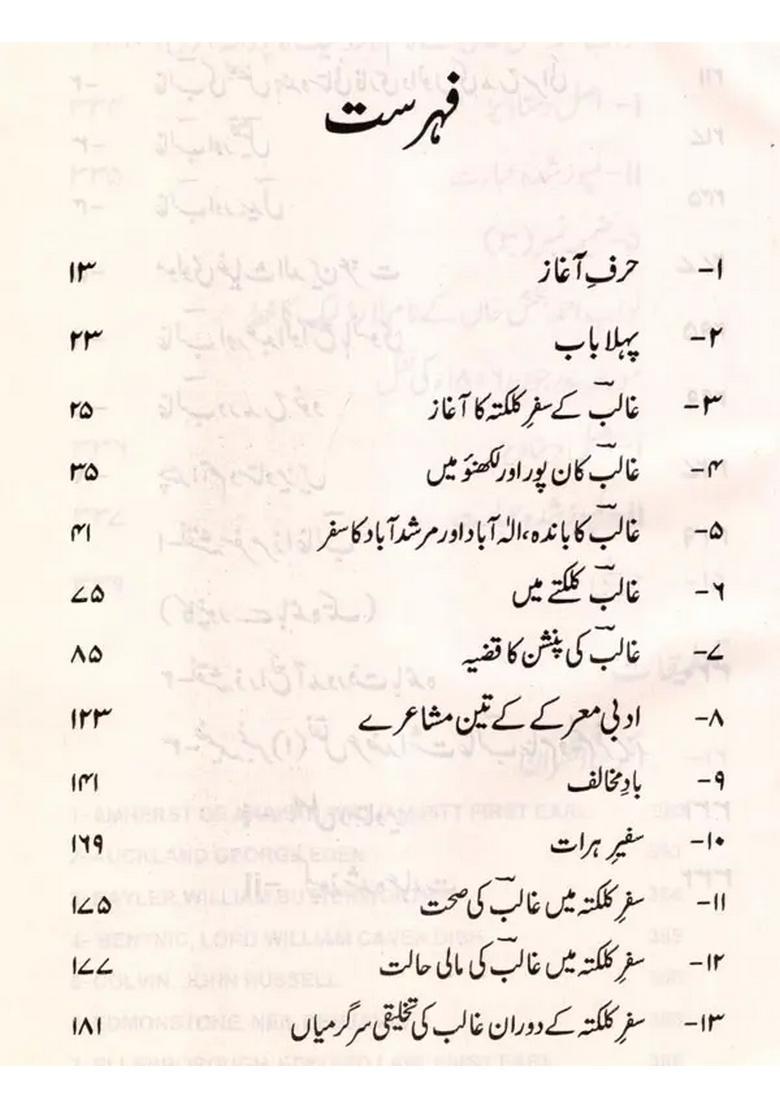 فہرست
۱- حرفِ آغاز ۱۳
۲- پہلا باب ۲۳
۳- غالبؔ کے سفرِ کلکتہ کا آغاز ۲۵
۴- غالبؔ کان پور اور لکھنؤ میں ۳۵
۵- غالبؔ کا باندہ، الٰہ آباد اور مرشد آباد کا سفر ۴۱
۶- غالبؔ کلکتے میں ۷۵
۷- غالبؔ کی پنشن کا قضیہ ۸۵
۸- ادبی معرکے کے تین مشاعرے ۱۲۳
۹- بادِ مخالف ۱۴۱
۱۰- سفیرِ ہرات ۱۶۹
۱۱- سفرِ کلکتہ میں غالبؔ کی صحت ۱۷۵
۱۲- سفرِ کلکتہ میں غالبؔ کی مالی حالت ۱۷۷
۱۳- سفرِ کلکتہ کے دوران غالب کی تخلیقی سرگرمیاں ۱۸۱